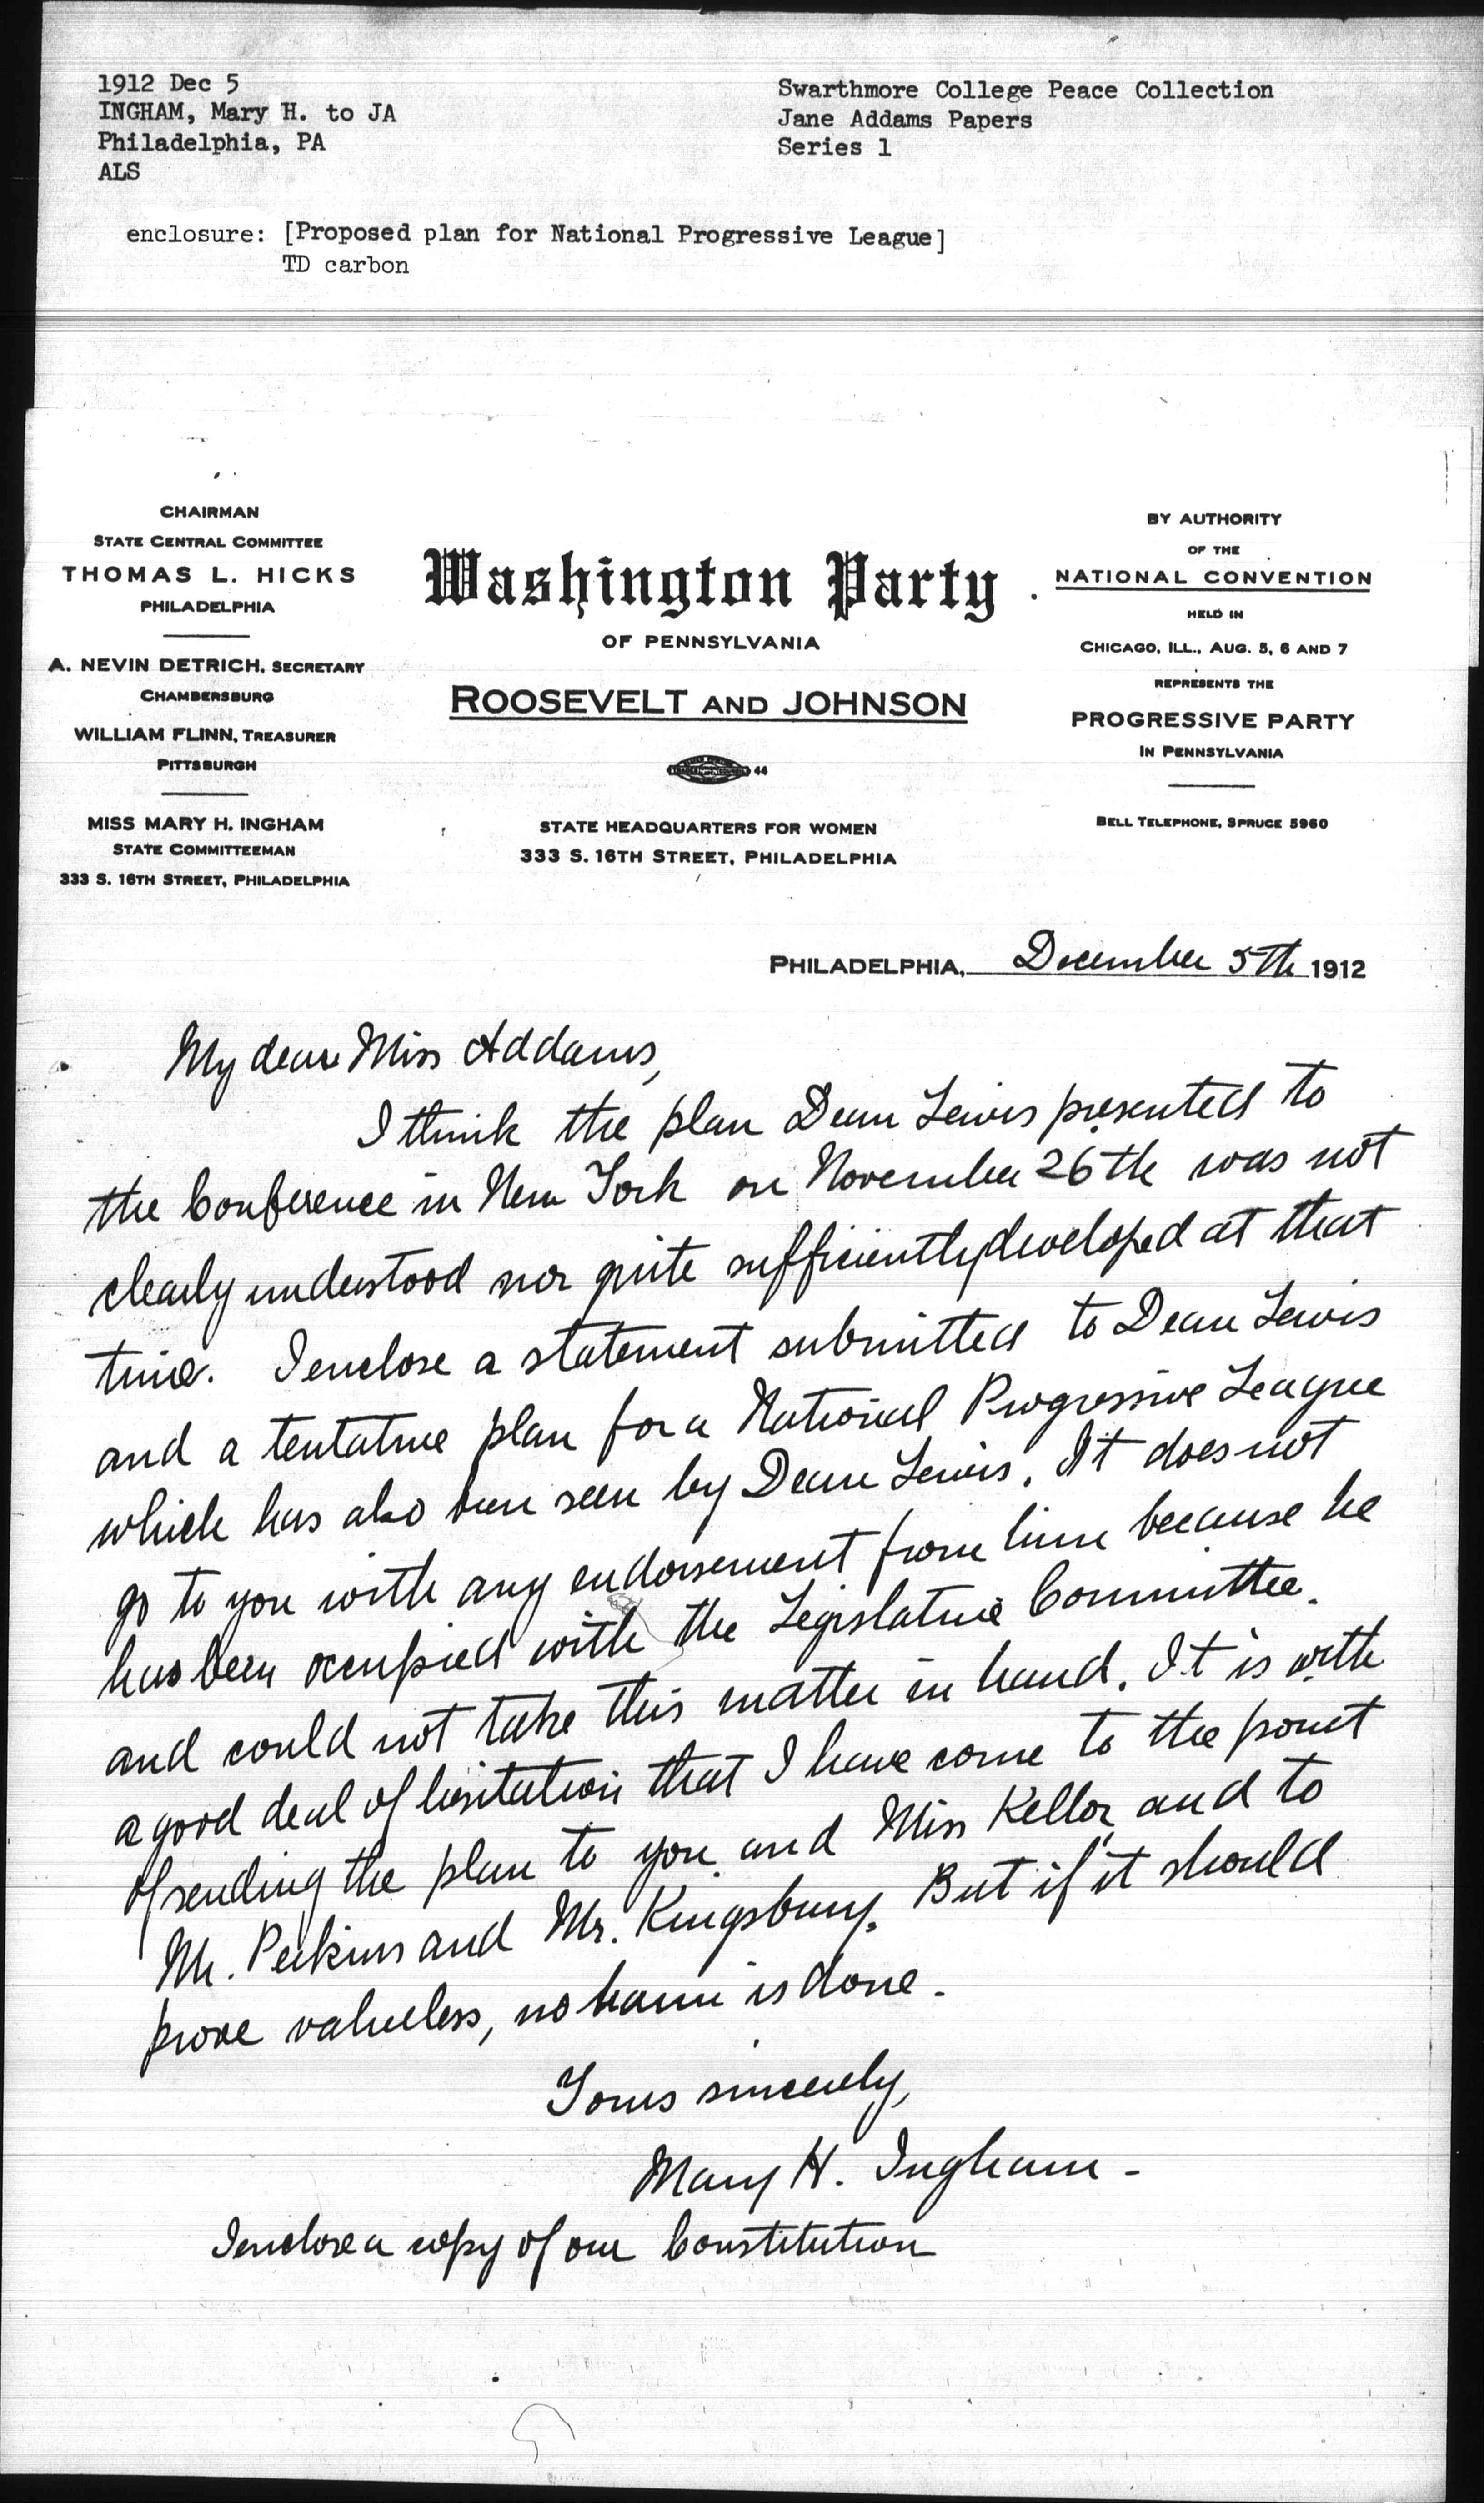 1912 Dec 5
INGHAM, Mary H. to JA
Philadelphia, PA
ALS
Swarthmore College Peace Collection
Jane Addams Papers
Series 1
enclosure: [Proposed plan for National Progressive League]
TD carbon
CHAIRMAN
STATE CENTRAL COMMITTEE
THOMAS L. HICKS
PHILADELPHIA
A. NEVIN DETRICH, SECRETARY
CHAMBERSBURG
WILLIAM FLINN, TREASURER
PITTSBURGH
MISS MARY H. INGHAM
STATE COMMITTEEMAN
333 S. 16TH STREET, PHILADELPHIA
Washington Party
OF PENNSYLVANIA
ROOSEVELT AND JOHNSON
44
STATE HEADQUARTERS FOR WOMEN
333 S. 16TH STREET, PHILADELPHIA
BY AUTHORITY
OF THE
NATIONAL CONVENTION
HELD IN
CHICAGO, ILL., AUG. 5, 6 AND 7
REPRESENTS THE
PROGRESSIVE PARTY
IN PENNSYLVANIA
BELL TELEPHONE, SPRUCE 5960
PHILADELPHIA, December 5th 1912
My dear Miss Addams,
I think the plan Dean Lewis presented to
the Conference in New York on November 26th was not
clearly understood nor quite sufficiently developed at that
time. I enclose a statement submitted to Dean Lewis
and a tentative plan for a National Progressive League
which has also been seen by Dean Lewis. It does not
go to you with any endorsement from him because he
has been occupied with the Legislative Committee.
and could not take this matter in hand. It is with
a good deal of hesitation that I have come to the point
of sending the plan to you and Miss Kellor and to
Mr. Perkins and Mr. Kingsbury. But if it should
prove valueless, no harm is done.
Yours sincerely,
Mary H. Ingham -
I enclose a copy of our Constitution